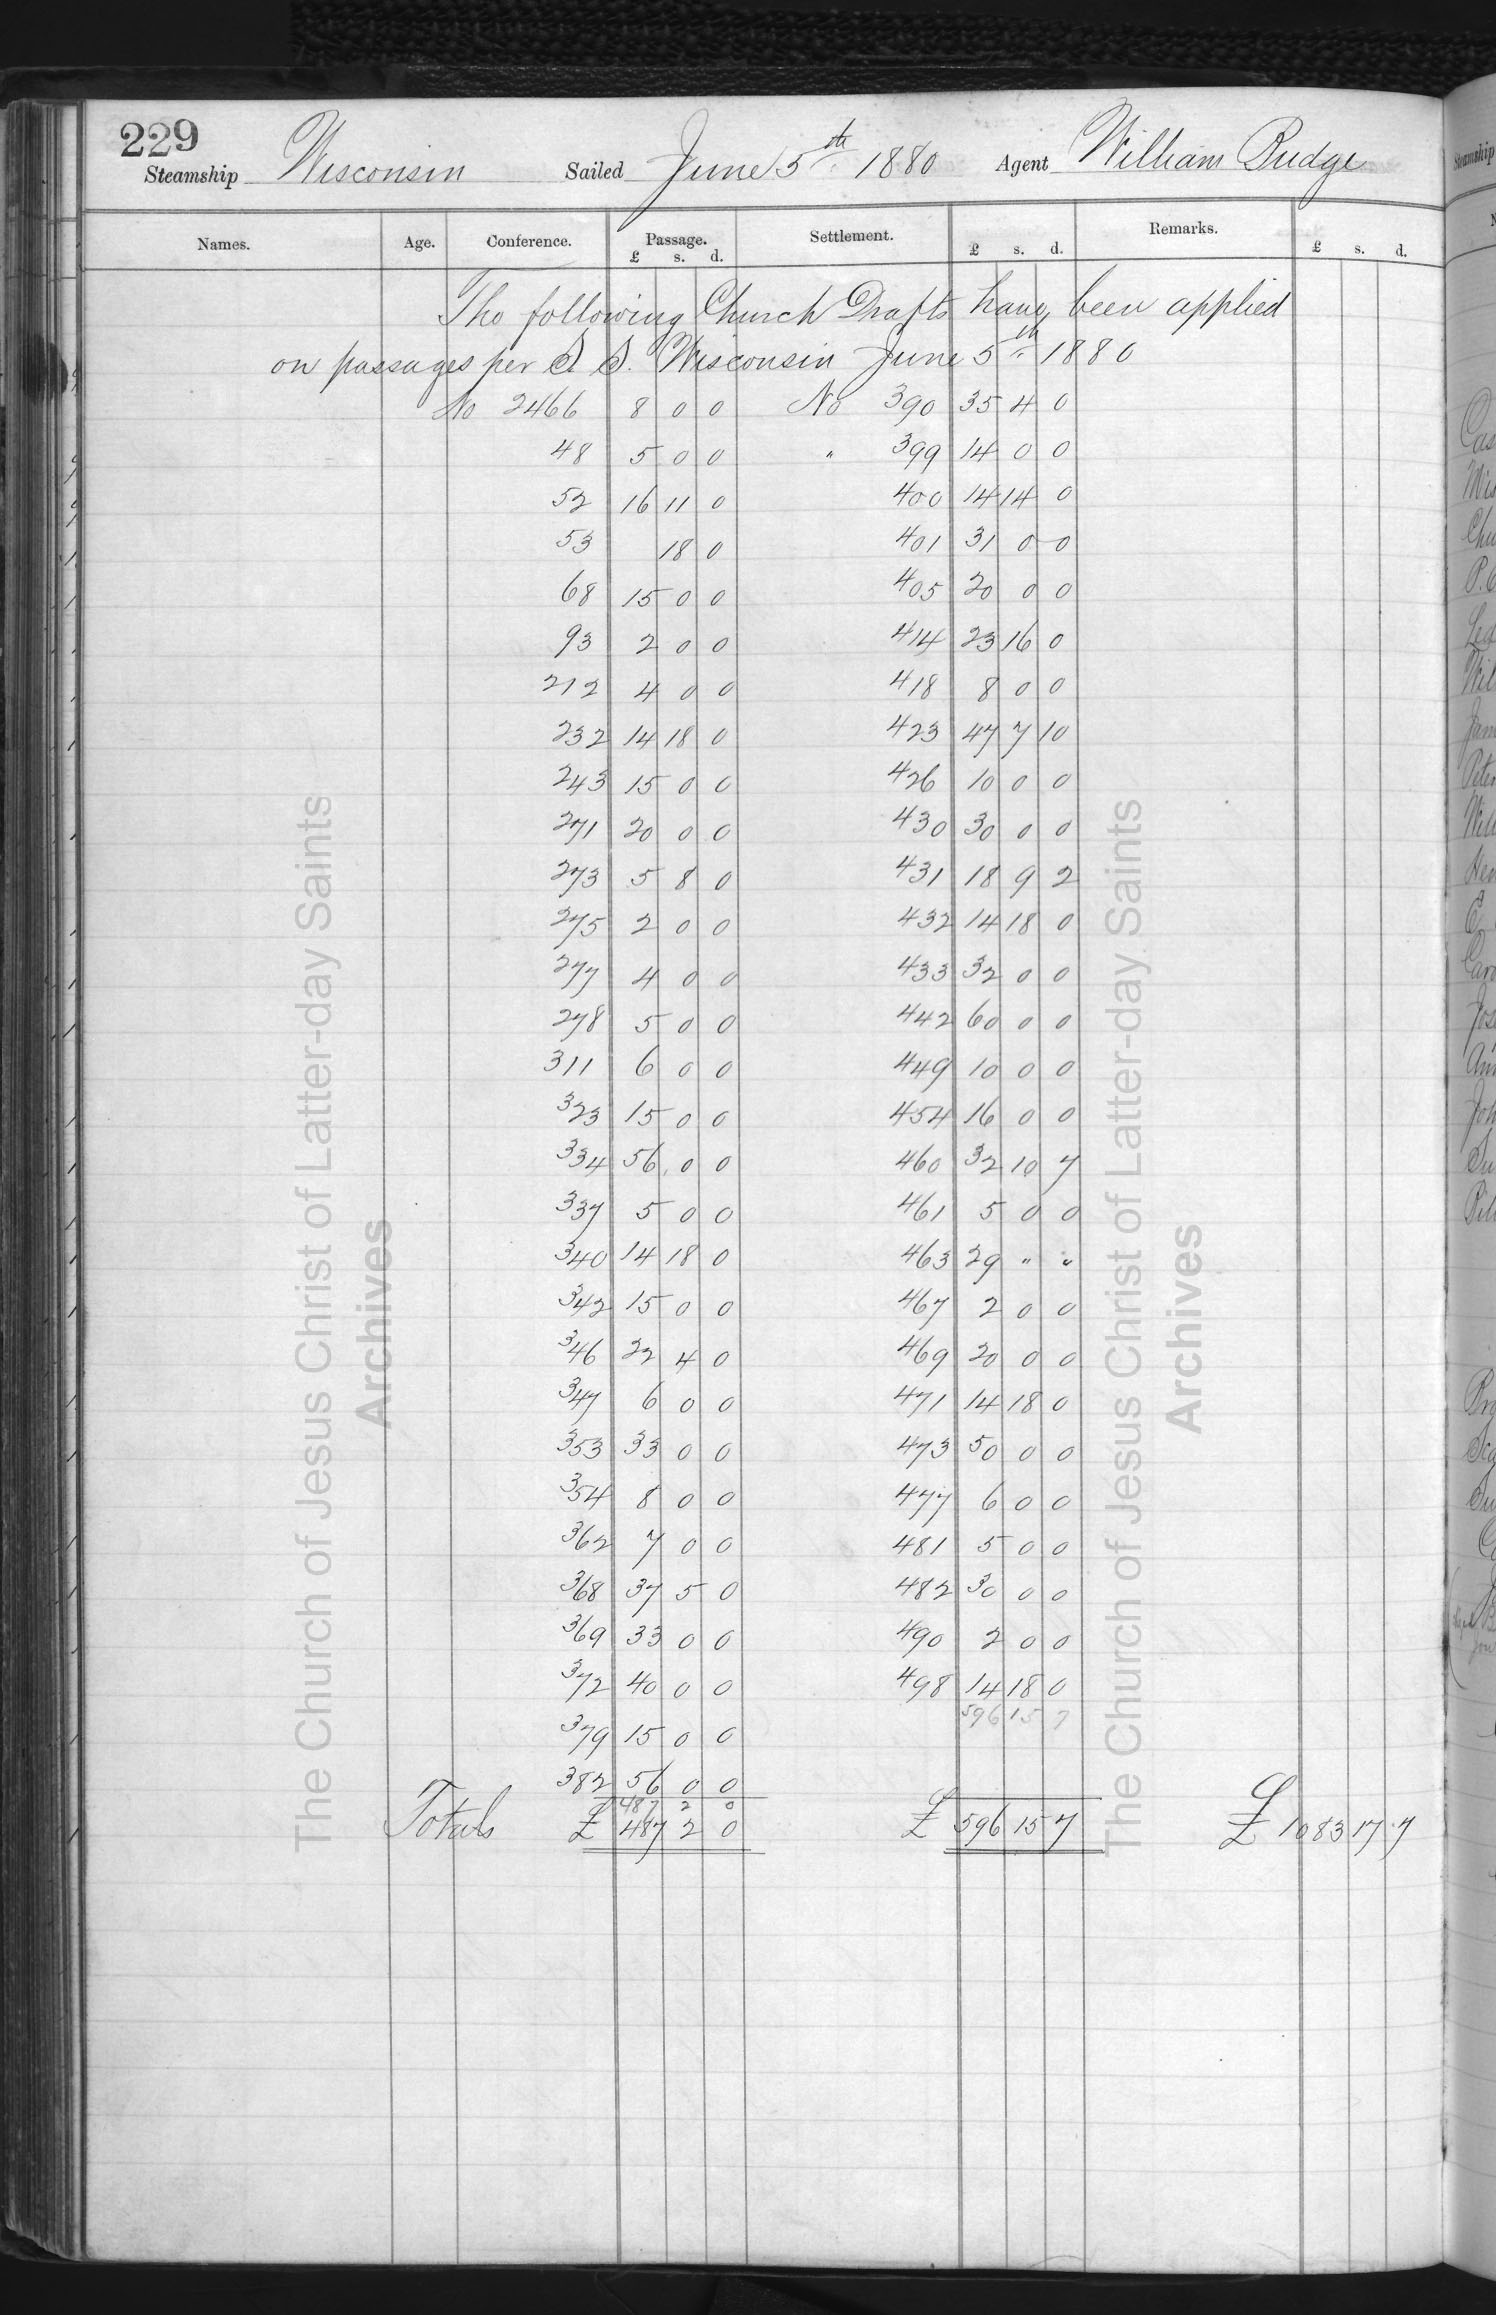 229
Steamship Wisconsin Sailed June 5th 1880 Agent William Budge
Names. Age. Conference. Passage. £ s. d. Settlement. £ s. d. Remarks. £ s. d.
The following Church Drafts have been applied
on passages per S. S. Wisconsin June 5th 1880
No 2466 8 0 0 No 390 35 4 0
48 5 0 0 " 399 14 0 0
52 16 11 0 400 14 14 0
53 18 0 401 31 0 0
68 15 0 0 405 20 0 0
93 2 0 0 414 23 16 0
212 4 0 0 418 8 0 0
232 14 18 0 423 47 7 10
243 15 0 0 426 10 0 0
271 20 0 0 430 30 0 0
273 5 8 0 431 18 9 2
275 2 0 0 432 14 18 0
277 4 0 0 433 32 0 0
278 5 0 0 442 60 0 0
311 6 0 0 449 10 0 0
323 15 0 0 454 16 0 0
334 56 0 0 460 32 10 7
337 5 0 0 461 5 0 0
340 14 18 0 463 29 " "
342 15 0 0 467 2 0 0
346 22 4 0 469 20 0 0
347 6 0 0 471 14 18 0
353 33 0 0 473 50 0 0
354 8 0 0 477 6 0 0
362 7 0 0 481 5 0 0
368 37 5 0 482 30 0 0
369 33 0 0 490 2 0 0
372 40 0 0 498 14 18 0
596 15 7
379 15 0 0
382 56 0 0
487 2 0
Totals £ 487 2 0 £ 596 15 7 £ 1083 17 7
The Church of Jesus Christ of Latter-day Saints
Archives
The Church of Jesus Christ of Latter-day Saints
Archives